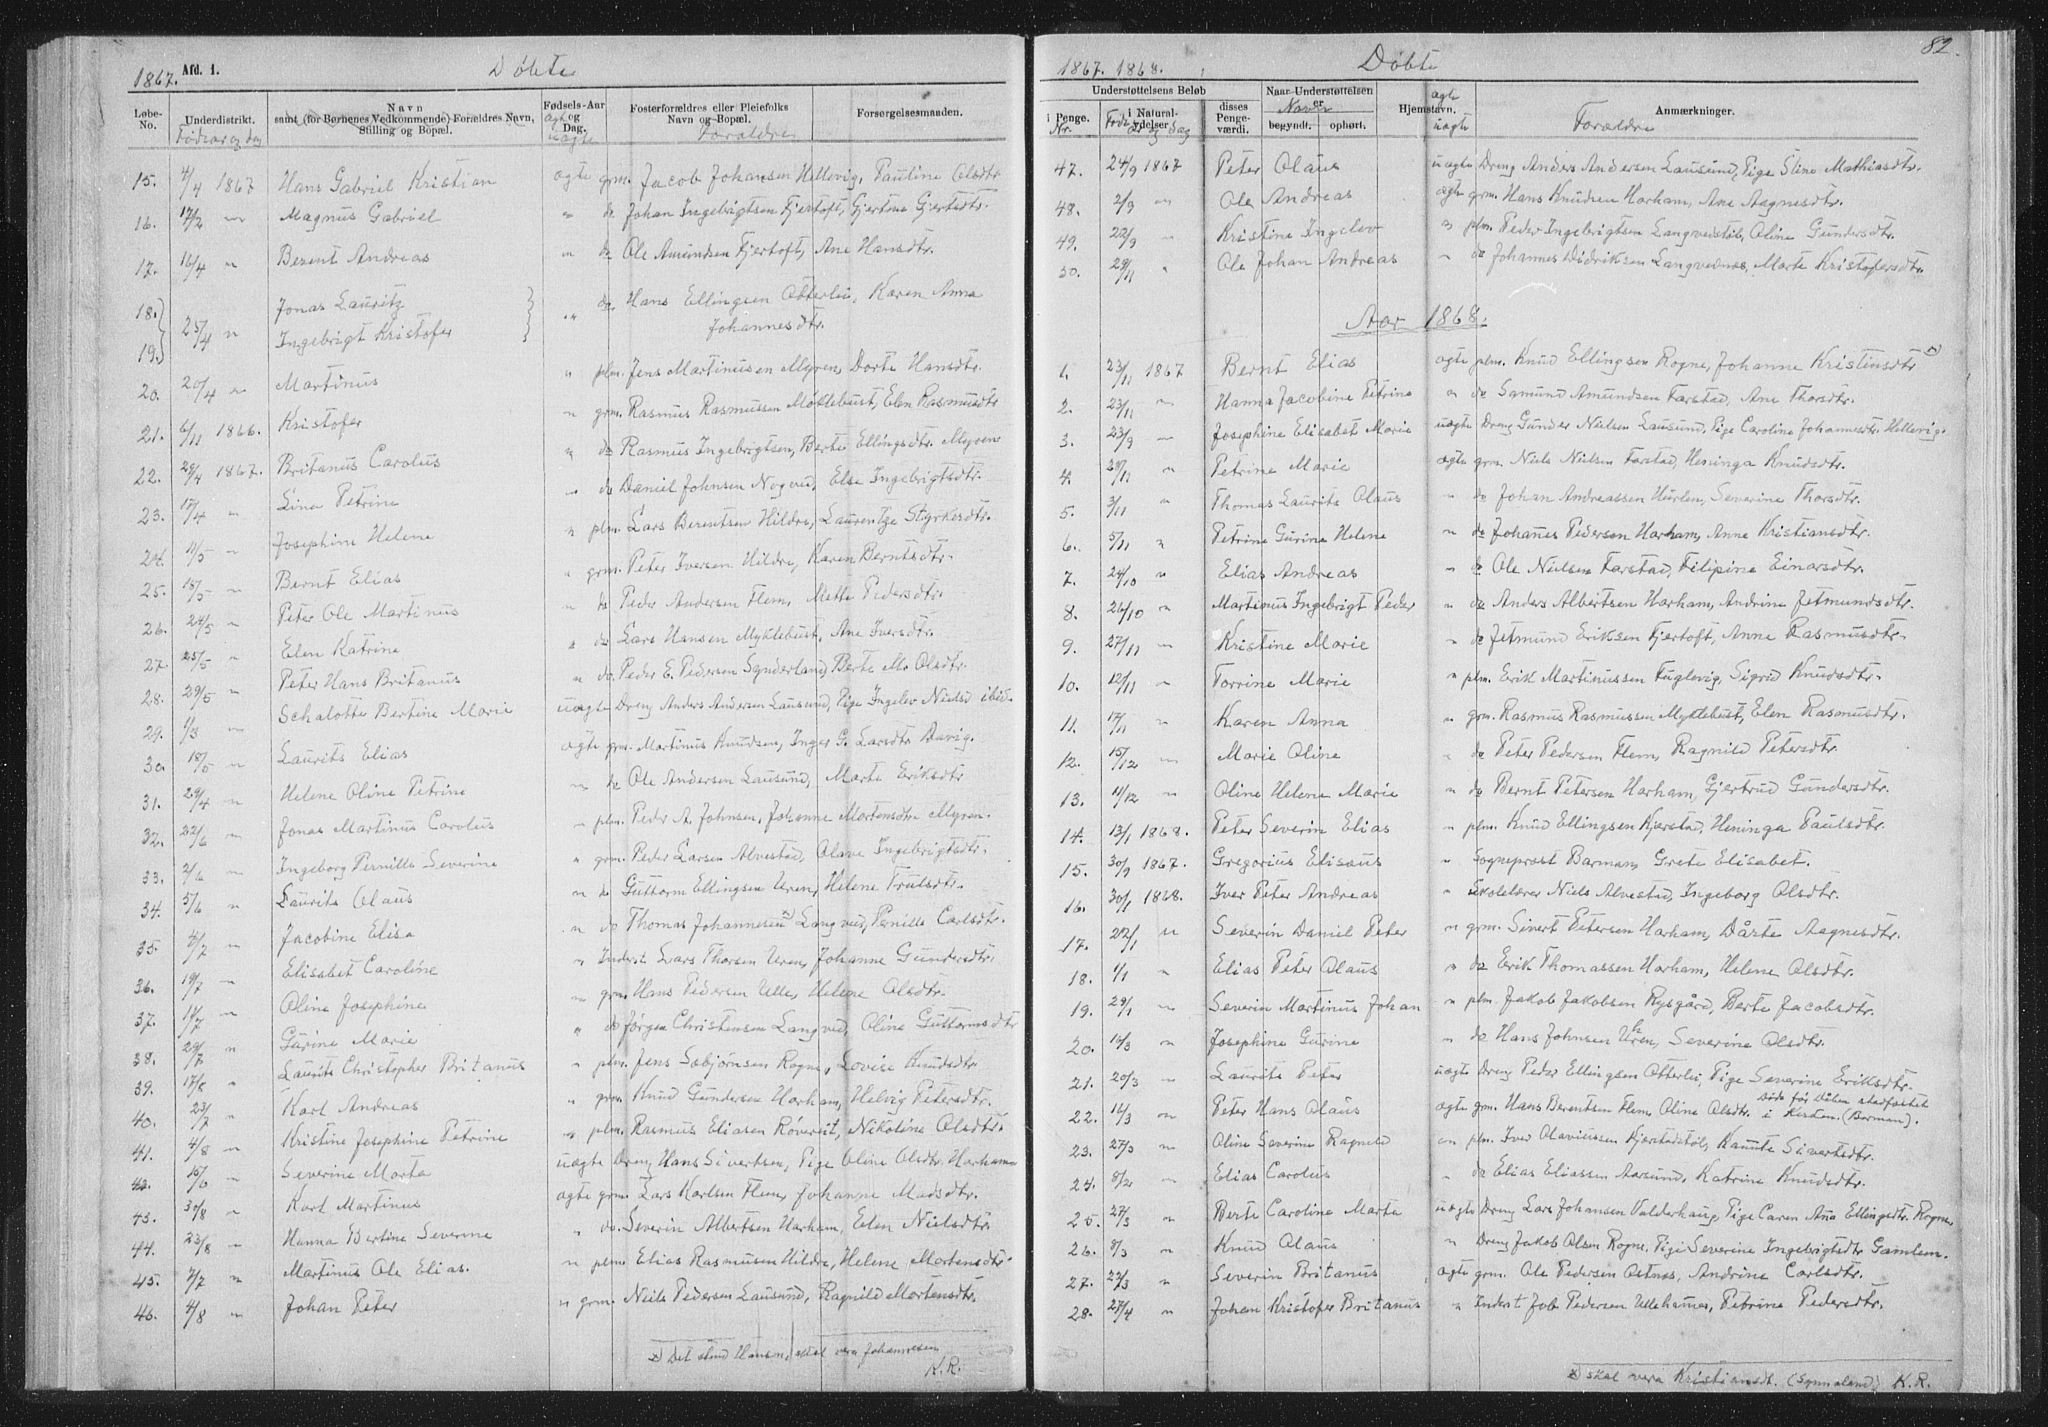 1867. Afd. 1. Döbte
Løbe-No. Underdistrikt. Navn samt (for Børnenes Vedkommende) Forældres Navn, Stilling og Bopæl. Fødsels-Aar og Dag. Fosterforældres eller Pleiefolks Navn og Bopæl. Forsørgelsesmaaden.
Födeaar og dag ægte uægte Forældre
15. 4/4 1867 Hans Gabriel Kristian ægte grm. Jacob Johansen Hellevig, Pauline Olsdtr.
16. 17/2 " Magnus Gabriel " do Johan Ingebrigtsen Fjertoft, Gjertine Gjertsdtr.
17. 16/4 " Berent Andreas " do Ole Amundsen Fjertoft, Ane Hansdtr.
18. Jonas Lauritz " do Hans Ellingsen Otterlei, Karen Anna
19. 25/4 " Ingebrigt Kristofer Johannesdtr.
20. 20/4 " Martinus " plm. Jens Martinusen Myren, Dorte Hansdtr.
21. 6/11 1866. Kristofer " grm. Rasmus Rasmussen Möklebust, Elen Rasmusdtr
22. 29/4 1867. Britanus Carolus " do Rasmus Ingebrigtsen, Berte Ellingsdtr. Myren
23. 17/4 " Lina Petrine " do Daniel Johnsen Nogved, Else Ingebrigtsdtr.
24. 11/5 " Josephine Helene " plm. Lars Berentsen Hildre, Laurentze Styrkesdtr.
25. 18/5 " Bernt Elias " grm. Peter Iversen Hildre, Karen Berntsdtr.
26. 24/5 " Peter Ole Martinus " do Peder Andersen Flem, Mette Pedersdtr.
27. 25/5 " Elen Katrine " do Lars Hansen Myklebust, Ane Iversdtr.
28. 29/5 " Peter Hans Britanus " do. Peder E. Pedersen Synderland, Berte Mo Olsdtr.
29. 1/3 " Schalotte Bertine Marie uægte Dreng Anders Andersen Lausund, Pige Ingelev Nielsd ibid.
30. 18/5 " Laurits Elias ægte grm. Martinus Knudsen, Inger G. Larsdtr Davig.
31. 29/4 " Helene Oline Petrine " do Ole Andersen Lausund, Marte Eriksdtr
32. 22/6 " Jonas Martinus Carolus " plm. Peder A. Johnsen, Johanne Mortensdtr Myren.
33. 2/6 " Ingeborg Pernille Severine " grm. Peder Larsen Alvestad, Olave Ingebrigtsdtr.
34. 5/6 " Laurits Olaus " do Guttorm Ellingsen Uren, Helene Trulsdtr.
35. 2/7 " Jacobine Elisa " do Thomas Johannesen x) Langved, Pernille Carlsdtr.
36. 19/7 " Elisabet Caroline " Inderst Lars Thorsen Uren, Johanne Gundersdtr.
37. 14/7 " Oline Josephine " grm. Hans Pedersen Ulle, Helene Olsdtr.
38. 29/7 " Gurine Marie " do Jørgen Christensen Langved, Oline Guttormsdtr
39. 17/8 " Laurits Christopher Britanus " plm. Jens Sebjørnsen Rogne, Lovise Knudsdtr
40. 23/7 " Karl Andreas " grm. Knud Gundersen Harham, Helvig Petersdtr.
41. 4/8 " Kristine Josephine Petrine " plm. Rasmus Eliasen Röversit, Nikoline Olsdtr.
42. 15/6 " Severine Marta uægte Dreng Hans Sivertsen, Pige Oline Olsdtr. Harham
43. 30/8 " Karl Martinus ægte grm. Lars Karlsen Flem, Johanne Madsdtr.
44. 23/8 " Hanna Bertine Severine " do. Severin Albertsen Harham, Elen Nielsdtr.
45. 7/7 " Martinus Ole Elias. " plm. Elias Rasmusen Hildre, Helene Mortensdtr.
46. 4/8 " Johan Peter " grm. Niels Pedersen Lausund, Ragnild Mortensdtr.
x) Det stod Hansen, skal vera Johannesen
K.R.
82.
1867. 1868. Döbte
Understøttelsens Beløb Naar Understøttelsen er Hjemstavn. Anmærkninger.
i Penge. i Natural-Ydelser disses Penge-værdi. begyndt. ophørt.
Nr. Föde aar og dag Navn ægte uægte Forældre
47. 24/9 1867 Peter Olaus uægte Dreng Anders Andersen Lausund, Pige Stine Mathiasdtr.
48. 2/9 " Ole Andreas ægte grm. Hans Knudsen Harham, Ane Aagnesdtr.
49. 22/9 " Kristine Ingelev " plm. Peder Ingebrigtsen Langvedstöl, Oline Gundersdtr.
50. 29/11 " Ole Johan Andreas " do Johannes Didriksen Langvednes, Marte Kristofersdtr.
Aar 1868.
1. 23/11 1867 Bernt Elias ægte plm. Knud Ellingsen Rogne, Johanne Kristinsdtr x)
2. 23/11 " Hanna Jacobine Petrine " do Samund Amundsen Farstad, Ane Thorsdtr.
3. 23/9 " Josephine Elisabet Marie uægte Dreng Gunder Nielsen Lausund, Pige Caroline Johannesdtr. Hellevig.
4. 29/11 " Petrine Marie ægte grm. Niels Nielsen Farstad, Heninga Knudsdtr.
5. 3/11 " Thomas Laurits Olaus " do Johan Andreassen Hurlen, Severine Thorsdtr.
6. 5/11 " Petrine Gurine Helene " do Johanes Pedersen Harham, Anne Kristiansdtr.
7. 24/10 " Elias Andreas " do Ole Nielsen Farstad, Filipine Einarsdtr.
8. 26/10 " Martinus Ingebrigt Peder " do Anders Albertsen Harham, Andrine Jetmundsdtr.
9. 27/11 " Kristine Marie " do Jetmund Eriksen Fjertoft, Anne Rasmusdtr.
10. 12/11 " Torrine Marie " plm. Erik Martinussen Fuglevig, Sigrid Knudsdtr.
11. 17/11 " Karen Anna " grm. Rasmus Rasmussen Myklebust, Elen Rasmusdtr.
12. 15/12 " Marie Oline " do Peter Pedersen Flem, Ragnild Petersdtr.
13. 11/12 " Oline Helene Marie " do Bernt Petersen Harham, Gjertrud Gundersdtr.
14. 13/1 1868. Peter Severin Elias " plm. Knud Ellingsen Kjerstad, Heninga Paulsdtr.
15. 30/9 1867. Gregorius Elisæus " Sogneprost Barman, Grete Elisabet.
16. 30/1 1868. Iver Peter Andreas " Skolelærer Niels Alvestad, Ingeborg Olsdtr.
17. 22/1 " Severin Daniel Peter " grm. Sivert Petersen Harham, Dårte Aagnesdtr.
18. 1/1 " Elias Peter Olaus " do Erik Thomassen Harham, Helene Olsdtr.
19. 29/1 " Severin Martinus Johan " plm. Jakob Jakobsen Rysgård, Berte Jacobsdtr.
20. 14/3 " Josephine Gurine " do Hans Johnsen Uren, Severine Olsdtr.
21. 20/3 " Laurits Peter uægte Dreng Peder Ellingsen Otterlei, Pige Severine Eriksdtr.
22. 16/3 " Peter Hans Olaus ægte grm. Hans Berentsen Flem, Oline Olsdtr. döde för Dåben stadfæstet i Kirken. (Barman).
23. 27/3 " Oline Severine Ragnild " plm. Iver Olaviussen Kjerstadstöl, Kanute Sivertsdtr.
24. 8/2 " Elias Carolus " do Elias Eliassen Aarsund, Katrine Knudsdtr.
25. 27/3 " Berte Caroline Marta uægte Dreng Lars Johansen Valderhaug, Pige Caren Ana Ellingsdtr. Rogne,
26. 8/3 " Knud Olaus " Dreng Jakob Olsen Rogne, Pige Severine Ingebrigtsdtr Gamlem.
27. 22/3 " Severin Britanus ægte grm. Ole Pedersen Oetnes, Andrine Carlsdtr.
28. 27/4 " Johan Kristofer Britanus " Inderst Job Pedersen Ullehamna, Petrine Pedersdtr.
x) skal vera Kristiansdt. (Synnaland) K.R.